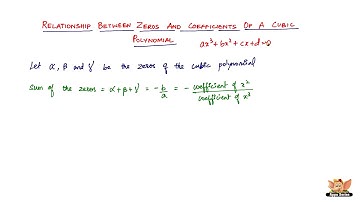 Relationship Between Zeros And Coefficients Of A Cubic
Polynomial
ax³ + bx² + cx + d = 0
Let α, β and γ be the zeros of the cubic polynomial
Sum of the zeros = α + β + γ = - b/a = - coefficient of x² / coefficient of x³